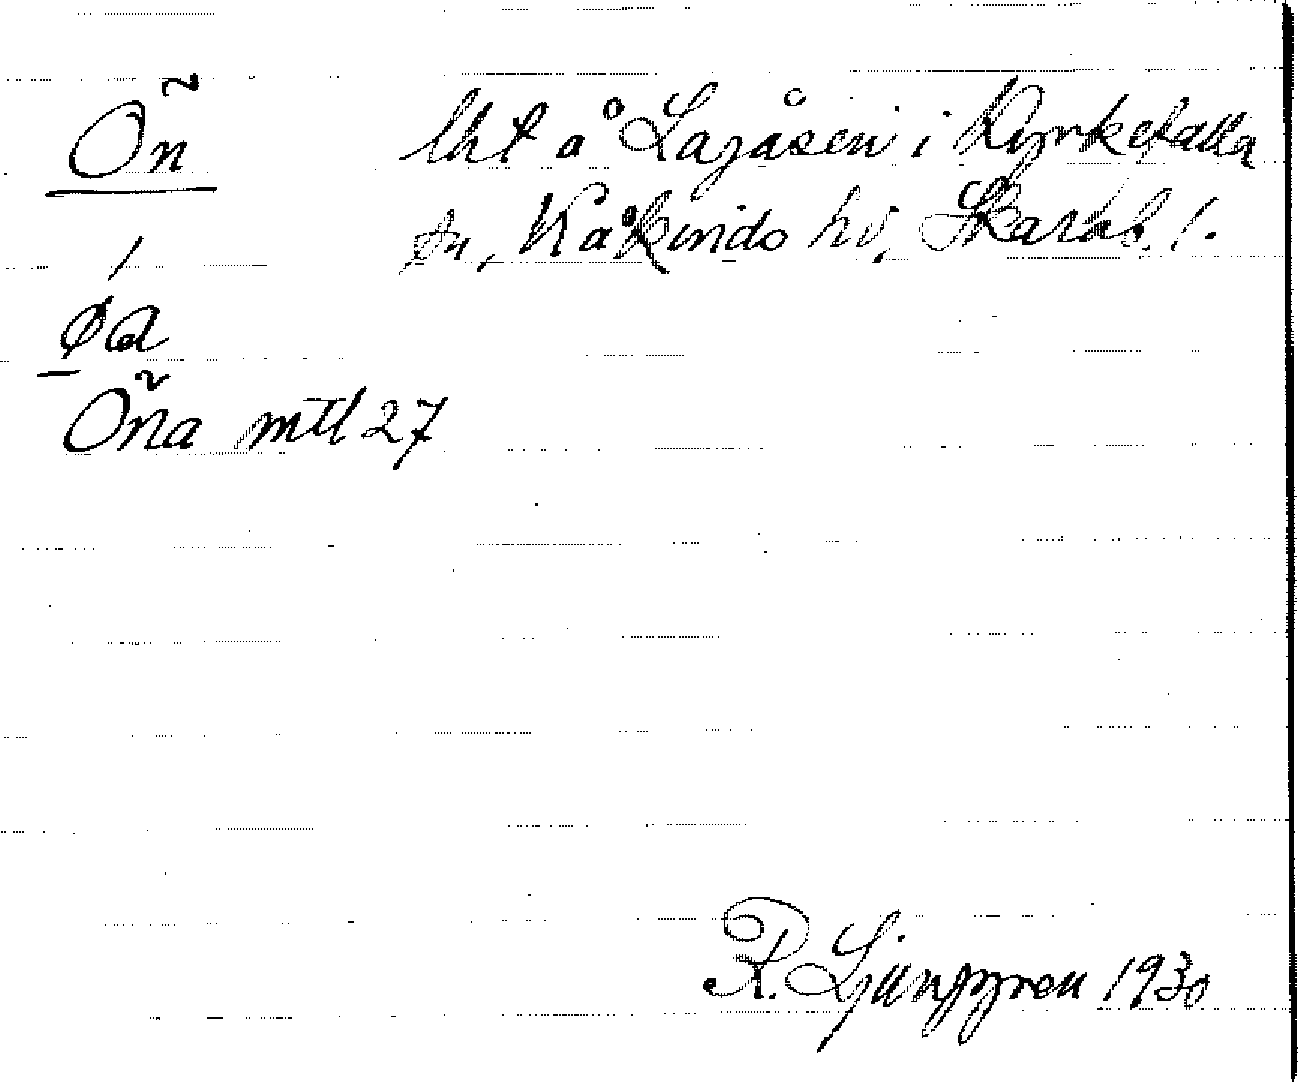 Ön lht å Lagåsen i Kyrkefalla
sn, Kåkindo hd, Skarab. l.
ø a
Öna mtl 27
R. Ljunggren 1930